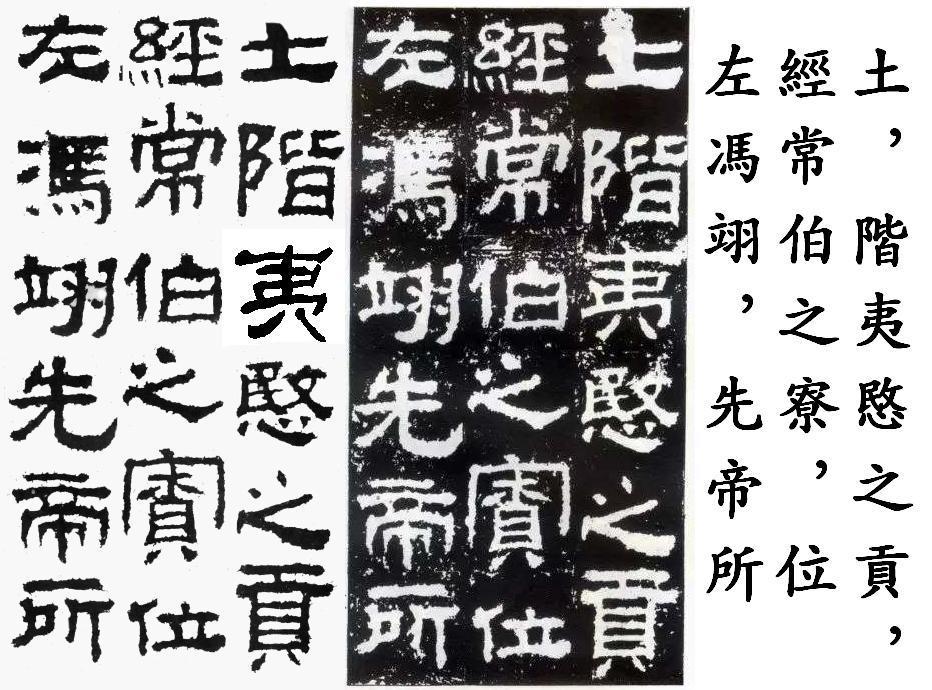 土，階夷愍之貢，
經常伯之寮，位
左馮翊，先帝所
土階夷愍之貢
經常伯之寮位
左馮翊先帝所
土階夷愍之貢
經常伯之寮位
左馮翊先帝所